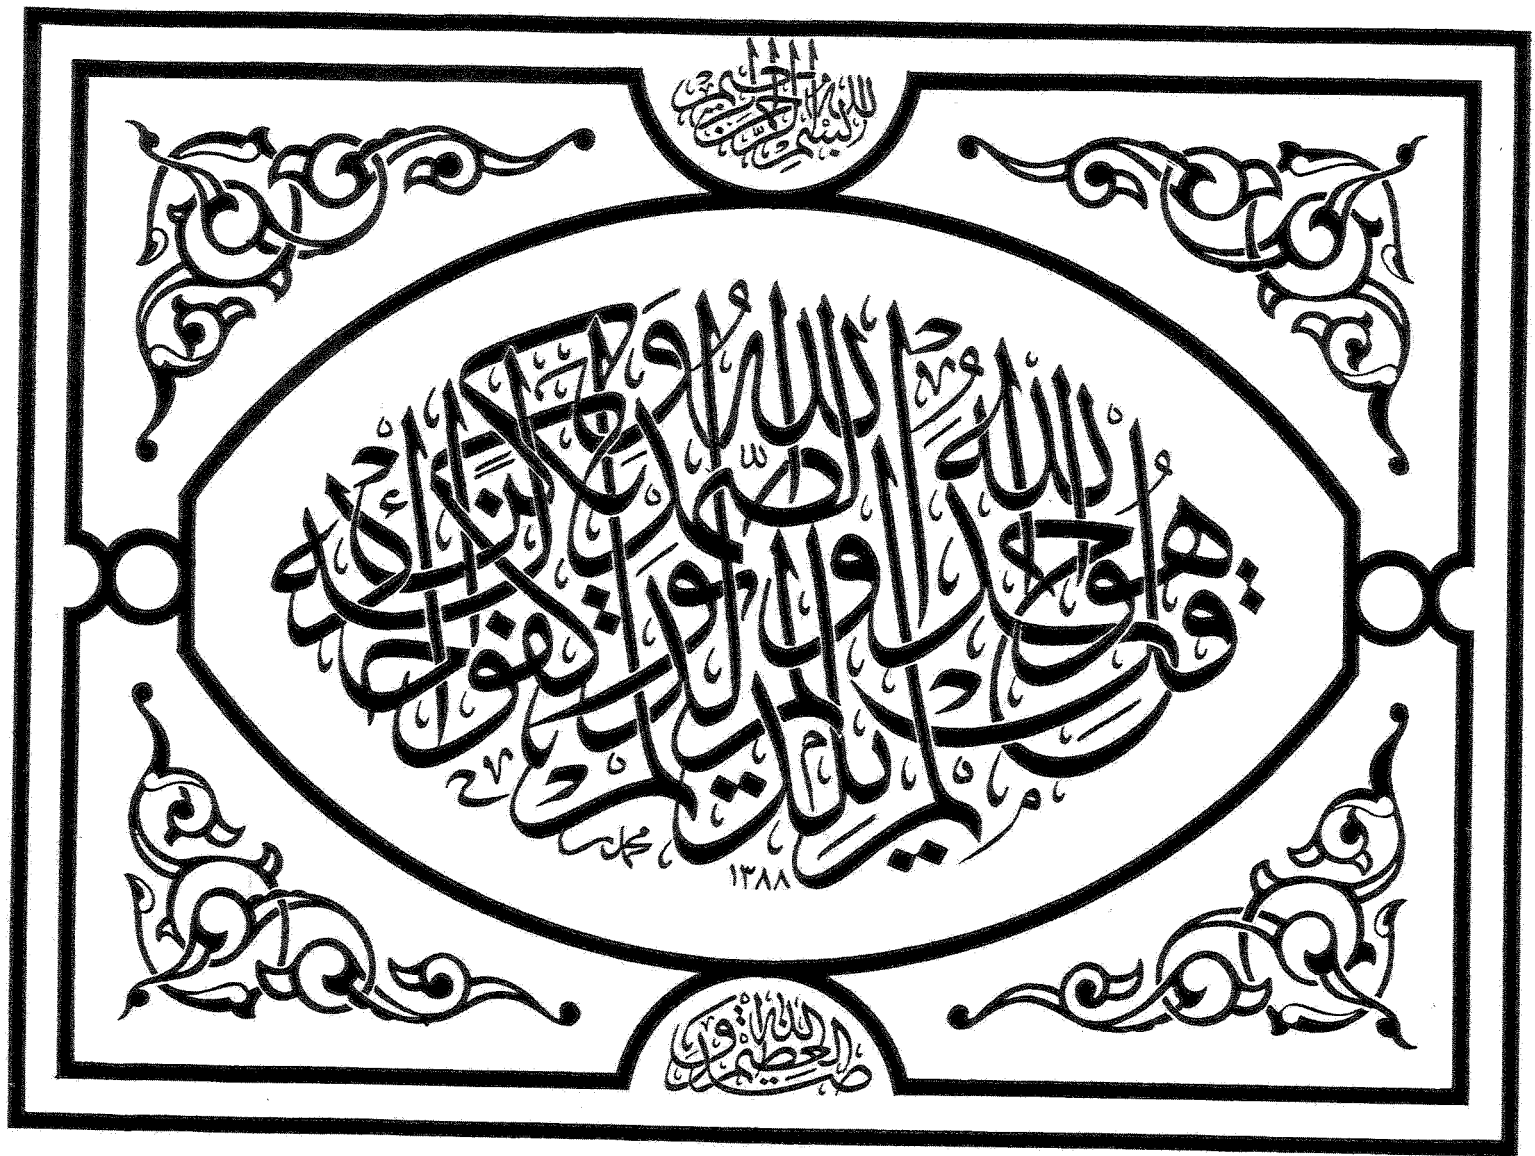 بسم الله الرحمن الرحيم
قل هو الله أحد الله الصمد لم يلد ولم يولد ولم يكن له كفوا أحد
محمد
١٣٨٨
صدق الله العظيم